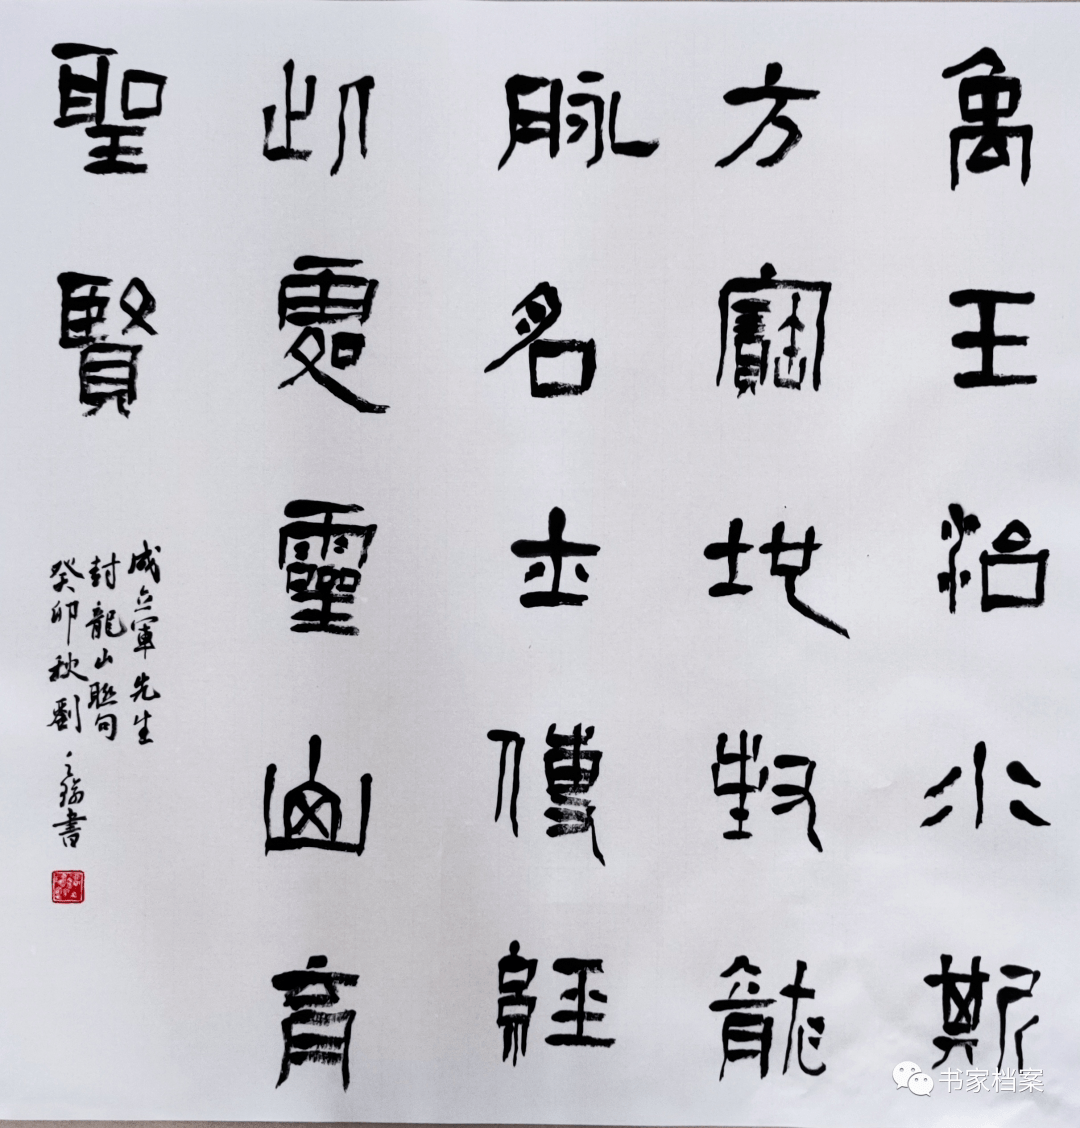 禹王治水斯
方寶地龍
脉名士傳經
此處靈育
聖賢
成立軍先生
封龍山聯句
癸卯秋劉書
书家档案